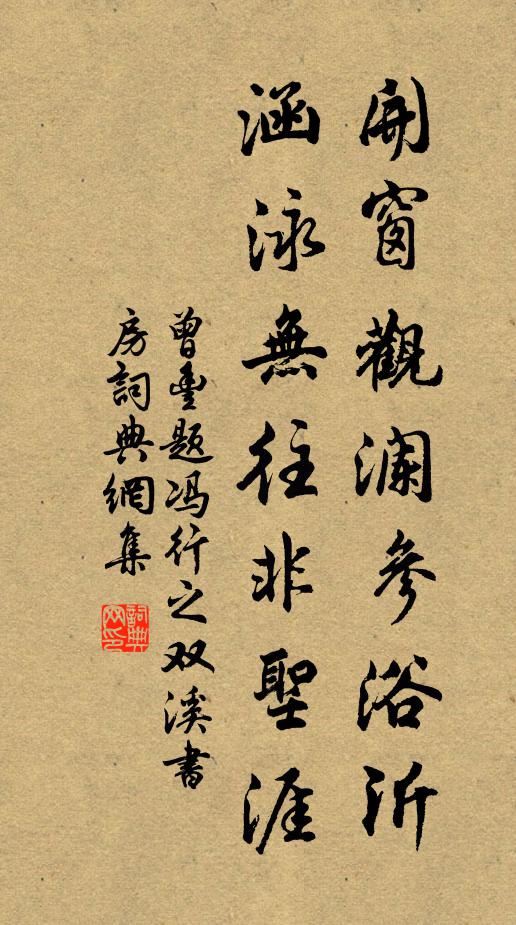 開窗觀瀾參浴沂
涵泳無往非聖涯
曾豐題冯行之双溪書
房詞典網集
詞典网印